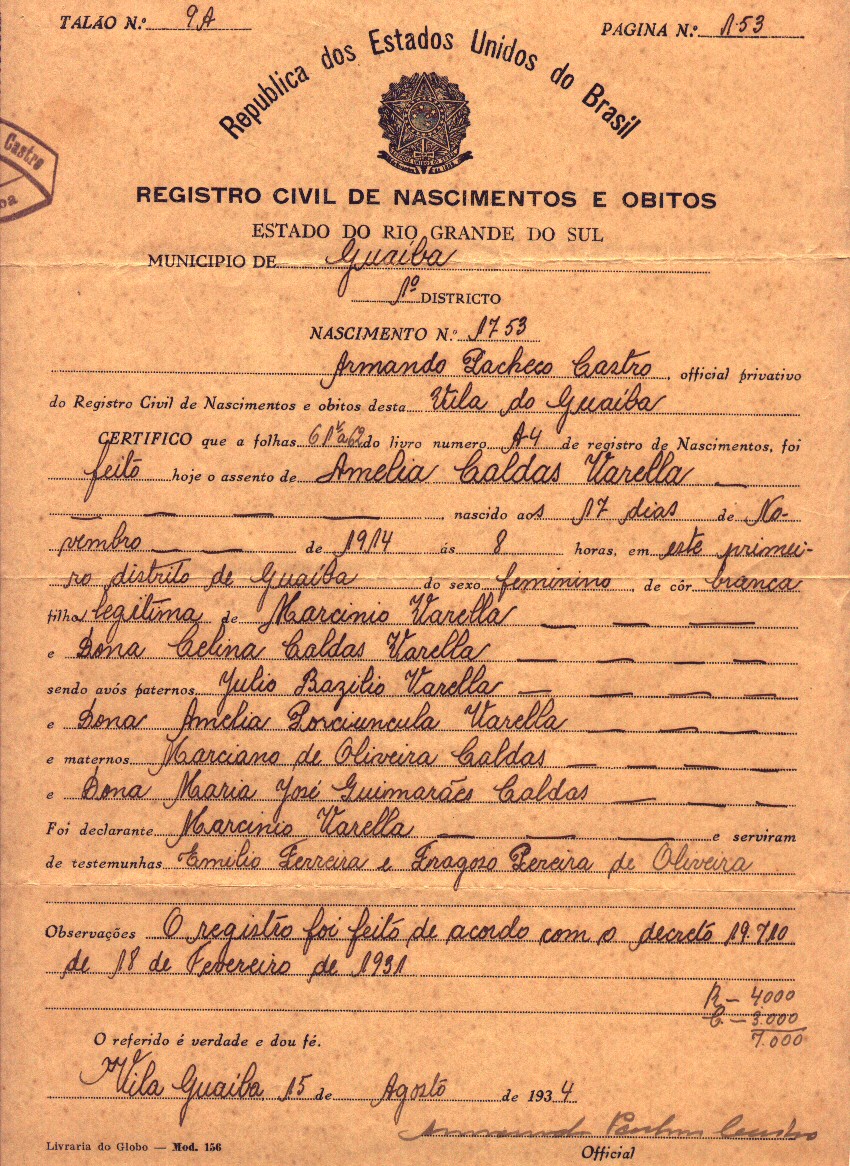 TALÃO N.º 9A
PAGINA N.º 153
Republica dos Estados Unidos do Brasil
Castro
REGISTRO CIVIL DE NASCIMENTOS E OBITOS
ESTADO DO RIO GRANDE DO SUL
MUNICIPIO DE Guaíba
1º DISTRICTO
NASCIMENTO N.º 1753
Armando Pacheco Castro, official privativo
do Registro Civil de Nascimentos e obitos desta Vila do Guaíba
CERTIFICO que a folhas 61vª62 do livro numero A4 de registro de Nascimentos, foi
feito hoje o assento de Amelia Caldas Varella
nascido aos 17 dias de No-
vembro de 1914 ás 8 horas, em este primei-
ro distrito de Guaíba do sexo feminino, de côr branca
filha legitima de Marcinio Varella
e Dona Celina Caldas Varella
sendo avós paternos Julio Bazilio Varella
e Dona Amelia Porciuncula Varella
e maternos Marciano de Oliveira Caldas
e Dona Maria José Guimarães Caldas
Foi declarante Marcinio Varella e serviram
de testemunhas Emilio Ferreira e Fragoso Pereira de Oliveira
Observações O registro foi feito de acordo com o decreto 19.710
de 18 de Fevereiro de 1931
R - 4000
C. - 3.000
7.000
O referido é verdade e dou fé.
Vila Guaiba, 15 de Agosto de 1934
Armando Pacheco Castro
Livraria do Globo — Mod. 156
Official